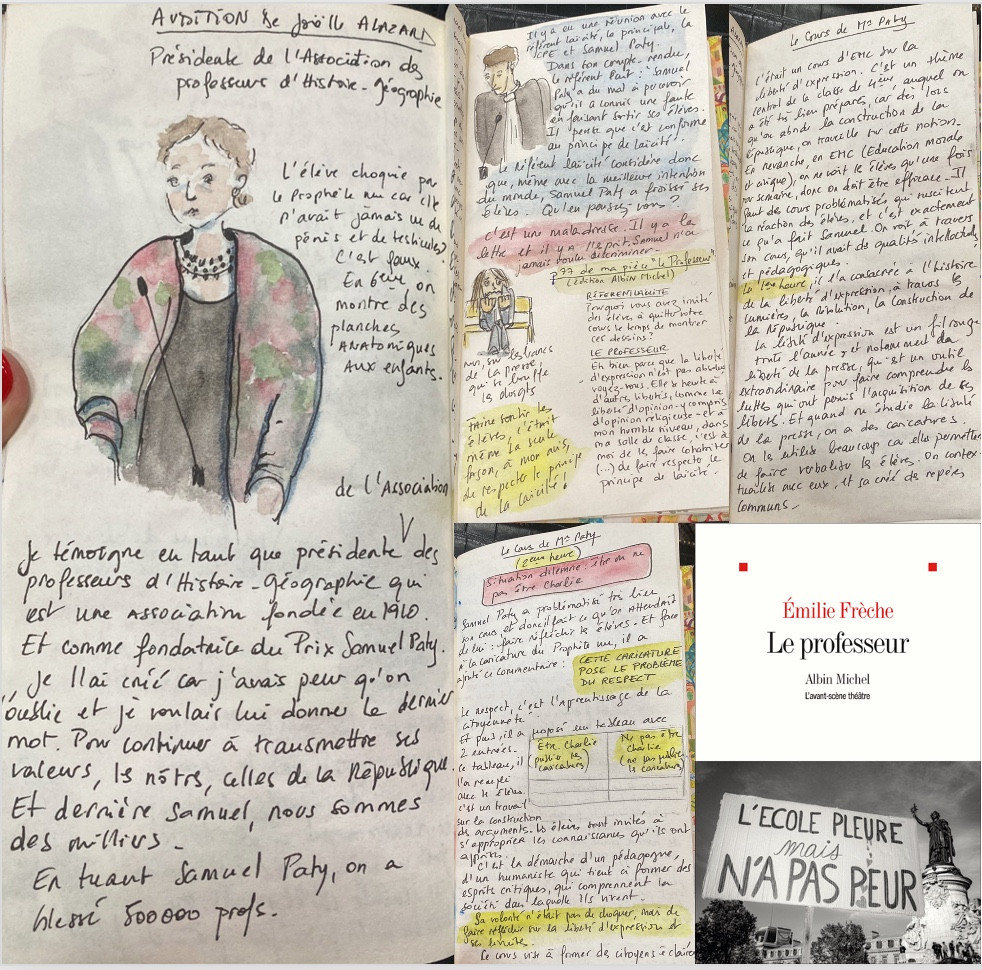 AUDITION de Joëlle ALAZARD
Présidente de l'Association des
professeurs d'Histoire-géographie
L'élève choquée par
le Prophète nu car elle
n'avait jamais vu de
pénis et de testicules,
c'est faux.
En 6ème, on
montre des
planches
ANATOMIQUES
AUX enfants.
de l'Association
Je témoigne en tant que présidente des
professeurs d'Histoire-géographie qui
est une Association fondée en 1910.
Et comme fondatrice du Prix Samuel Paty.
Je l'ai créé car j'avais peur qu'on
l'oublie et je voulais lui donner le dernier
mot. Pour continuer à transmettre ses
valeurs, les nôtres, celles de la République.
Et derrière Samuel, nous sommes
des milliers.
En tuant Samuel Paty, on a
blessé 500000 profs.
Il y a eu une réunion avec le
référent laïcité, la principale, la
CPE et Samuel Paty.
Dans son compte-rendu,
le référent écrit : "Samuel
Paty a du mal à percevoir
qu'il a commis une faute
en faisant sortir ses élèves.
Il pense que c'est conforme
au principe de laïcité".
Le Référent laïcité considère donc
que, même avec la meilleure intention
du monde, Samuel Paty a froissé ses
élèves. Qu'en pensez-vous ?
C'est une maladresse. Il y a la
lettre et il y a l'esprit. Samuel n'a
jamais voulu discriminer.
P 77 de ma pièce "le Professeur"
(édition Albin Michel)
RÉFÉRENT LAÏCITÉ
Pourquoi vous avez invité
des élèves à quitter votre
cours le temps de montrer
ces dessins ?
LE PROFESSEUR
Eh bien parce que la liberté
d'expression n'est pas absolue
voyez-vous. Elle se heurte à
d'autres libertés, comme la
liberté d'opinion - y compris
d'opinion religieuse - et à
mon humble niveau, dans
ma salle de classe, c'est à
moi de les faire cohabiter
(...) de faire respecter le
principe de laïcité.
Moi, sur les bancs
de la presse,
qui se bouffe
les doigts
FAIRE sortir les
élèves, c'était
même la seule
façon, à mon avis,
de respecter le principe
de la laïcité !
Le Cours de Mr Paty
C'était un cours d'EMC sur la
liberté d'expression. C'est un thème
central de la classe de 4ème, auquel on
a été très bien préparés, car dès lors
qu'on aborde la construction de la
République, on travaille sur cette notion.
En revanche, en EMC (Education morale
et civique), on ne voit les élèves qu'une fois
par semaine, donc on doit être efficace. Il
faut des cours problématisés qui suscitent
la réaction des élèves, et c'est exactement
ce qu'a fait Samuel. On voit à travers
son cours, qu'il avait des qualités intellectuelles
et pédagogiques.
La 1ère heure, il l'a consacrée à l'histoire
de la liberté d'expression, à travers les
lumières, la Révolution, la Construction de
la République.
La liberté d'expression est un fil rouge
toute l'année, et notamment la
liberté de la presse, qui est un outil
extraordinaire pour faire comprendre les
luttes qui ont permis l'acquisition de ses
libertés. Et quand on étudie la liberté
de la presse, on a des caricatures.
On les utilise beaucoup car elles permettent
de faire verbaliser les élèves. On contex-
tualise avec eux, et ça crée des repères
communs.
Le Cours de Mr Paty
(2ème heure)
Situation dilemme : être ou ne
pas être Charlie
Samuel Paty a problématisé très bien
son cours, et donc il fait ce qu'on attendrait
de lui : faire réfléchir les élèves. Et face
à la caricature du Prophète nu, il a
ajouté ce commentaire :
CETTE CARICATURE
POSE LE PROBLÈME
DU RESPECT
Le respect, c'est l'apprentissage de la
citoyenneté.
Et puis, il a proposé un tableau avec
2 entrées.
Etre Charlie
(publier les
caricatures)
Ne pas être
Charlie
(ne pas publier
les caricatures)
Ce tableau, il
l'a rempli
avec les élèves.
C'est un travail
sur la construction
des arguments. Les élèves sont invités à
s'approprier les connaissances qu'ils ont
apprises.
C'est la démarche d'un pédagogue,
d'un humaniste qui tient à former des
esprits critiques, qui comprennent la
société dans laquelle ils vivent.
Sa volonté n'était pas de choquer, mais de
faire réfléchir sur la liberté d'expression et
ses limites.
Le cours vise à former des citoyens éclairés
Émilie Frèche
Le professeur
Albin Michel
L'avant-scène théâtre
L'ECOLE PLEURE
mais
N'A PAS PEUR